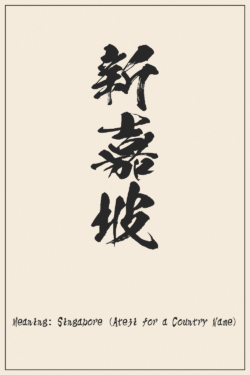 新嘉坡
Meaning: Singapore (Ateji for a Country Name)